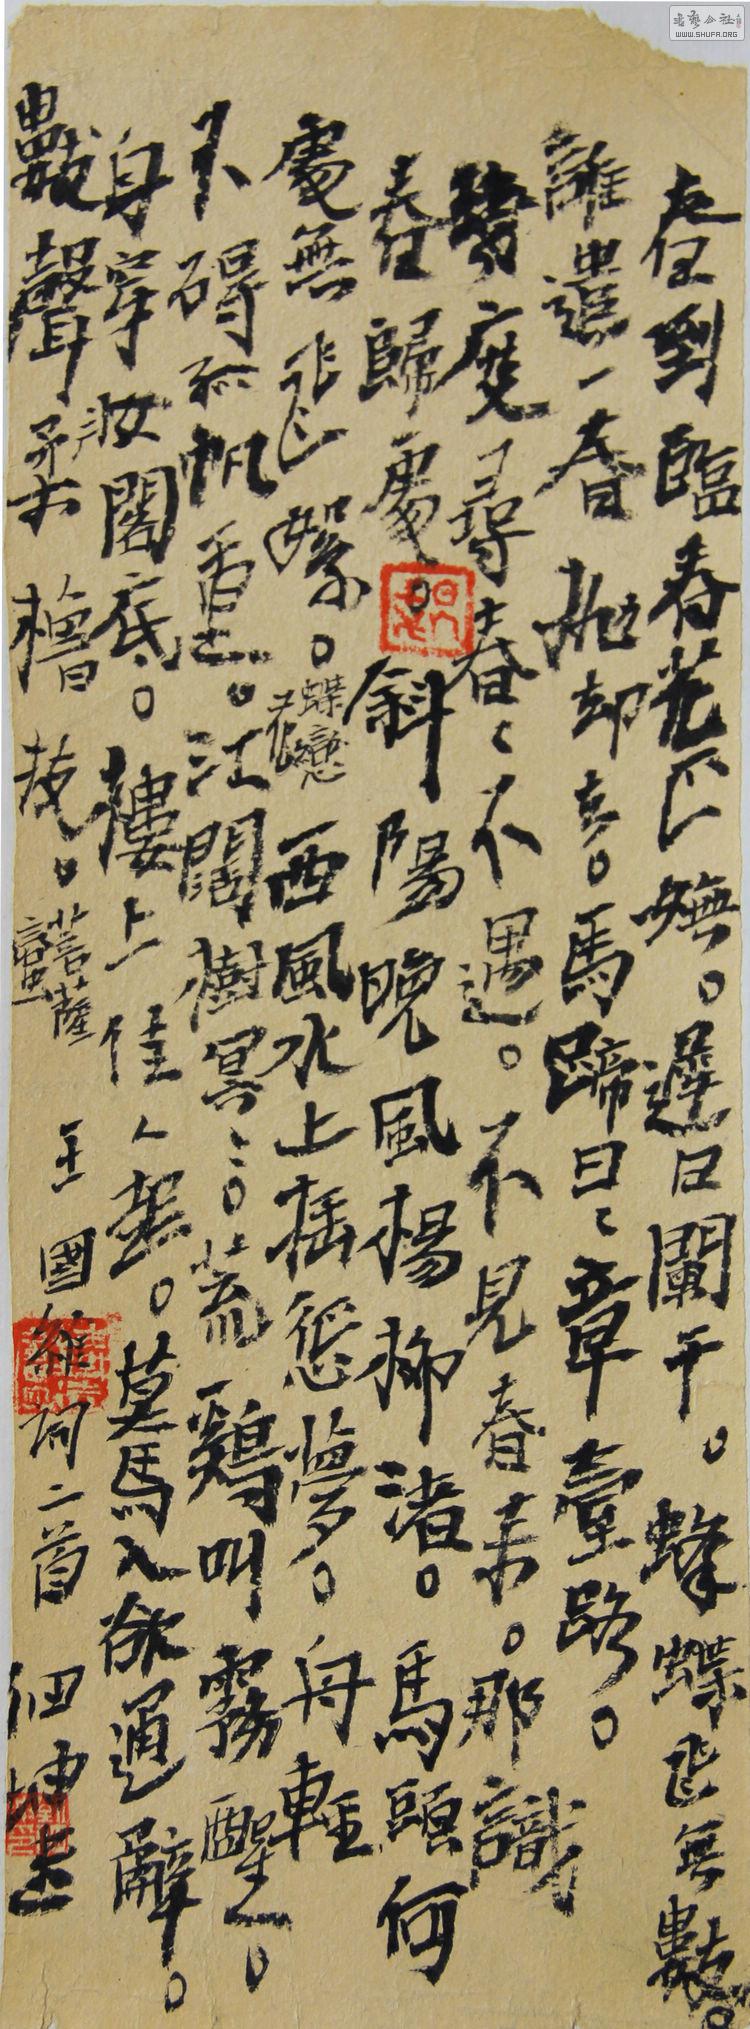 春到臨春花正嫵。遲日闌干。蜂蝶飛無數。
誰遣一春抛却去。馬蹄日々章臺路。
幾度尋春々不遇。不見春来。那識
春歸處。斜陽晚風楊柳渚。馬頭何
處無飛絮。蝶戀花 西風水上摇征夢。舟輕
不碍孤帆重。江闊樹冥々。荒鷄叫霧醒。
舟穿妝閣底。樓上佳人起。驀入欲通辭。
數聲柔櫓枝。菩薩蠻 王國維詞二首
WWW.SHUFA.ORG